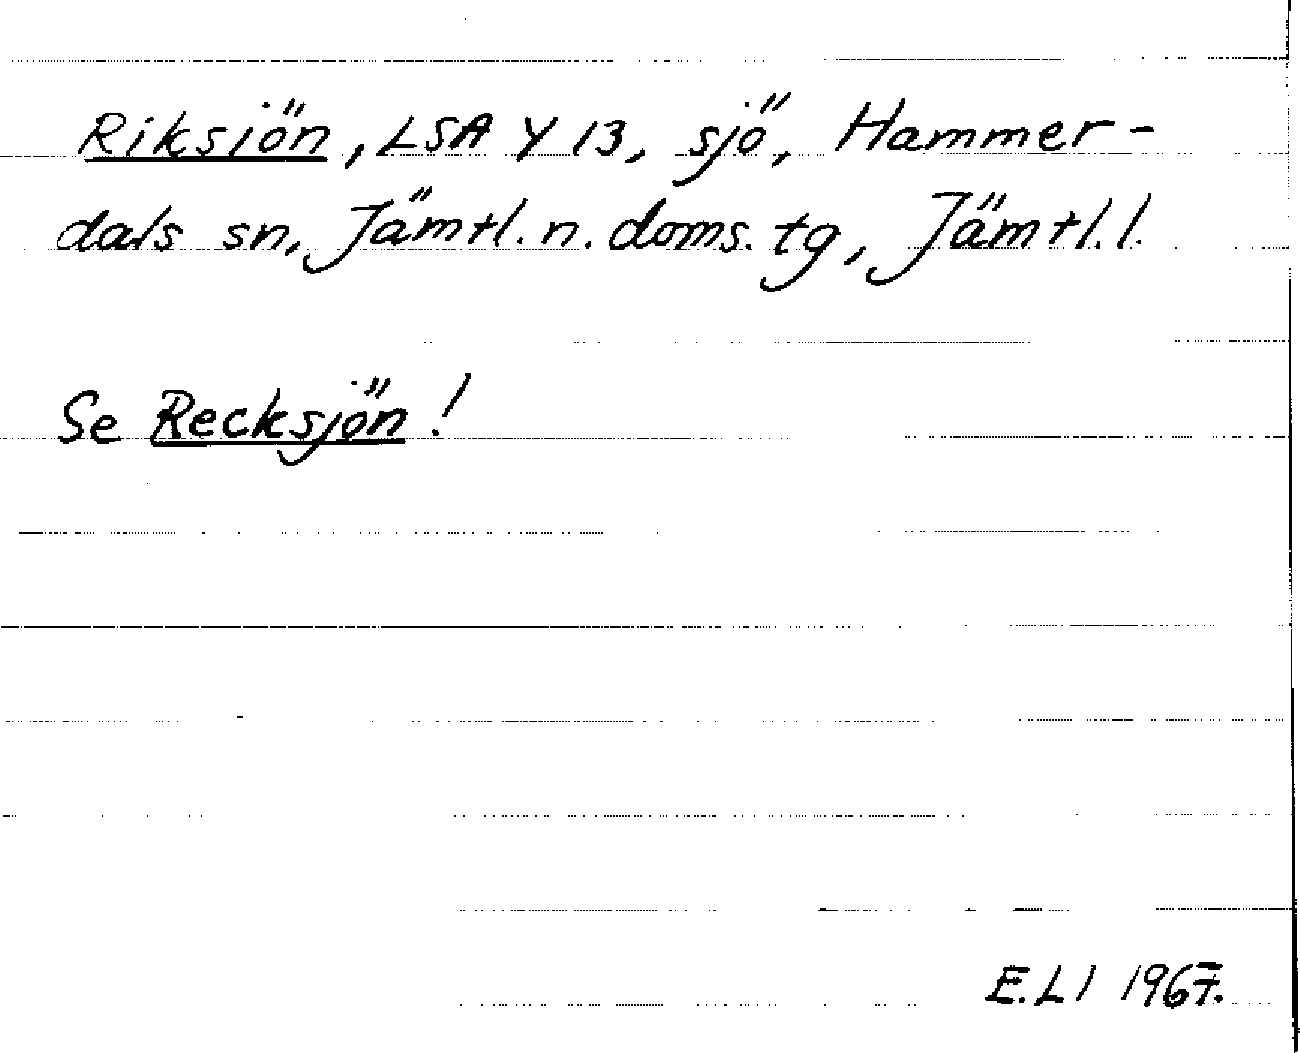 Riksiön, LSA Y 13, sjö, Hammer-
dals sn, Jämtl. n. doms. tg, Jämtl. l.
Se Recksjön!
E.LI 1967.